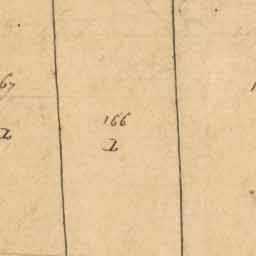 67
166
2
2